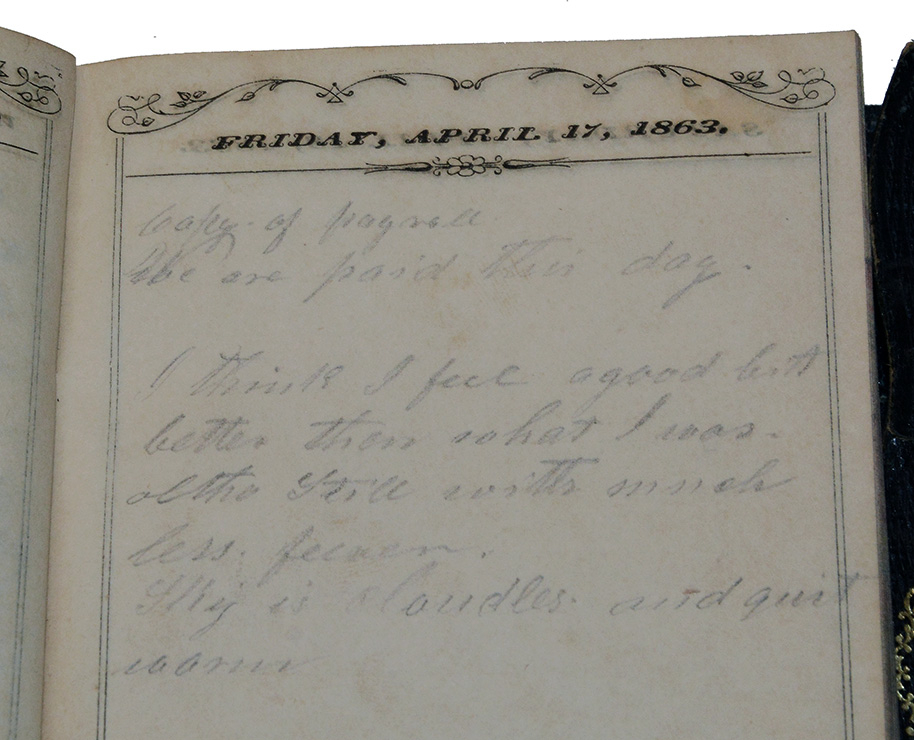 FRIDAY, APRIL 17, 1863.
Copy of payroll
We are paid this day.
I think I feel agood bitt
better then what I was.
altho Still with much
less feever.
Sky is Cloudles and quit
warm